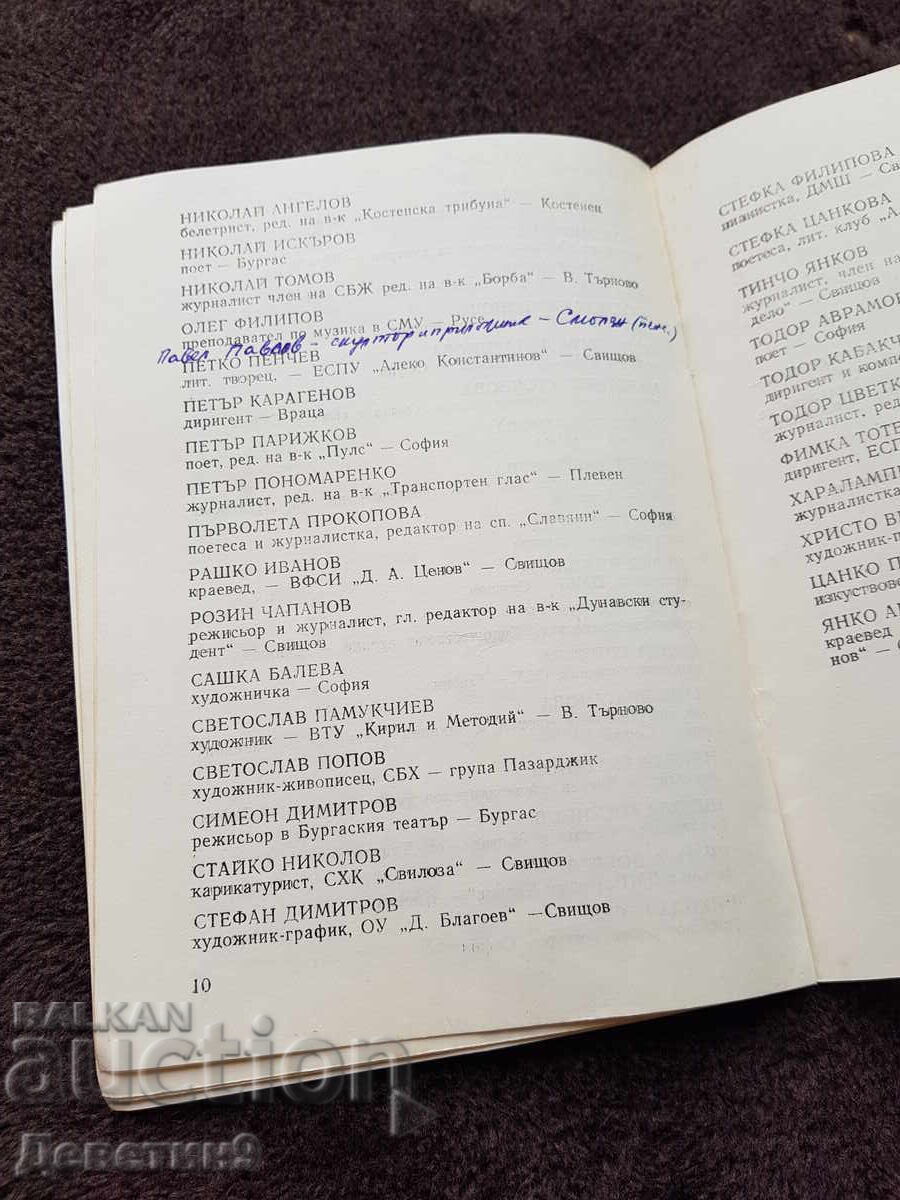 НИКОЛАЙ АНГЕЛОВ
белетрист, ред. на в-к „Костенска трибуна“ — Костенец
НИКОЛАЙ ИСКЪРОВ
поет — Бургас
НИКОЛАЙ ТОМОВ
журналист член на СБЖ ред. на в-к „Борба“ — В. Търново
ОЛЕГ ФИЛИПОВ
преподавател по музика в СМУ — Русе
Павел Павлов – скулптор – Смолян
ПЕТКО ПЕНЧЕВ
лит. творец, — ЕСПУ „Алеко Константинов“ — Свищов
ПЕТЪР КАРАГЕНОВ
диригент — Враца
ПЕТЪР ПАРИЖКОВ
поет, ред. на в-к „Пулс“ — София
ПЕТЪР ПОНОМАРЕНКО
журналист, ред. на в-к „Транспортен глас“ — Плевен
ПЪРВОЛЕТА ПРОКОПОВА
поетеса и журналистка, редактор на сп. „Славяни“ — София
РАШКО ИВАНОВ
краевед, — ВФСИ „Д. А. Ценов“ — Свищов
РОЗИН ЧАПАНОВ
режисьор и журналист, гл. редактор на в-к „Дунавски сту-
дент“ — Свищов
САШКА БАЛЕВА
художничка — София
СВЕТОСЛАВ ПАМУКЧИЕВ
художник — ВТУ „Кирил и Методий“ — В. Търново
СВЕТОСЛАВ ПОПОВ
художник-живописец, СБХ — група Пазарджик
СИМЕОН ДИМИТРОВ
режисьор в Бургаския театър — Бургас
СТАЙКО НИКОЛОВ
карикатурист, СХК „Свилоза“ — Свищов
СТЕФАН ДИМИТРОВ
художник-график, ОУ „Д. Благоев“ —Свищов
10
СТЕФКА ФИЛИПОВА
пианистка, ДМШ — Св
СТЕФКА ЦАНКОВА
поетеса, лит. клуб „А
ТИНЧО ЯНКОВ
журналист, член на
дело“ — Свищов
ТОДОР АВРАМО
поет — София
ТОДОР КАБАКЧ
диригент и компо
ТОДОР ЦВЕТК
журналист, ред
ФИМКА ТОТЕ
диригент, ЕСП
ХАРАЛАМПИ
журналистка
ХРИСТО В
художник-п
ЦАНКО П
изкуствове
ЯНКО А
краевед
нов“ —
BALKAN
auction
Деветин9